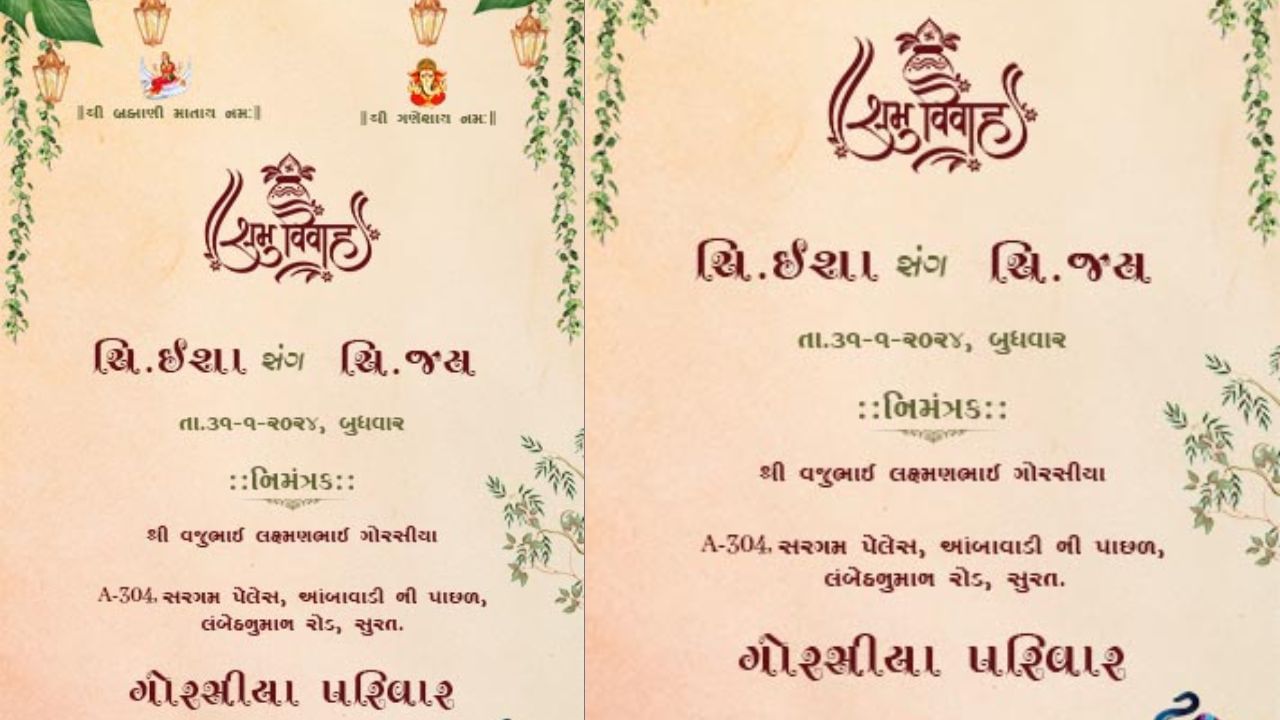 ॥શ્રી બ્રહ્માણી માતાય નમઃ॥
॥શ્રી ગણેશાય નમઃ॥
શુભ વિવાહ
ચિ.ઈશા સંગ ચિ.જય
તા.૩૧-૧-૨૦૨૪, બુધવાર
::નિમંત્રક::
શ્રી વજુભાઈ લક્ષ્મણભાઈ ગોરસીયા
A-304, સરગમ પેલેસ, આંબાવાડી ની પાછળ,
લંબેહનુમાન રોડ, સુરત.
ગોરસીયા પરિવાર
શુભ વિવાહ
ચિ.ઈશા સંગ ચિ.જય
તા.૩૧-૧-૨૦૨૪, બુધવાર
::નિમંત્રક::
શ્રી વજુભાઈ લક્ષ્મણભાઈ ગોરસીયા
A-304, સરગમ પેલેસ, આંબાવાડી ની પાછળ,
લંબેહનુમાન રોડ, સુરત.
ગોરસીયા પરિવાર